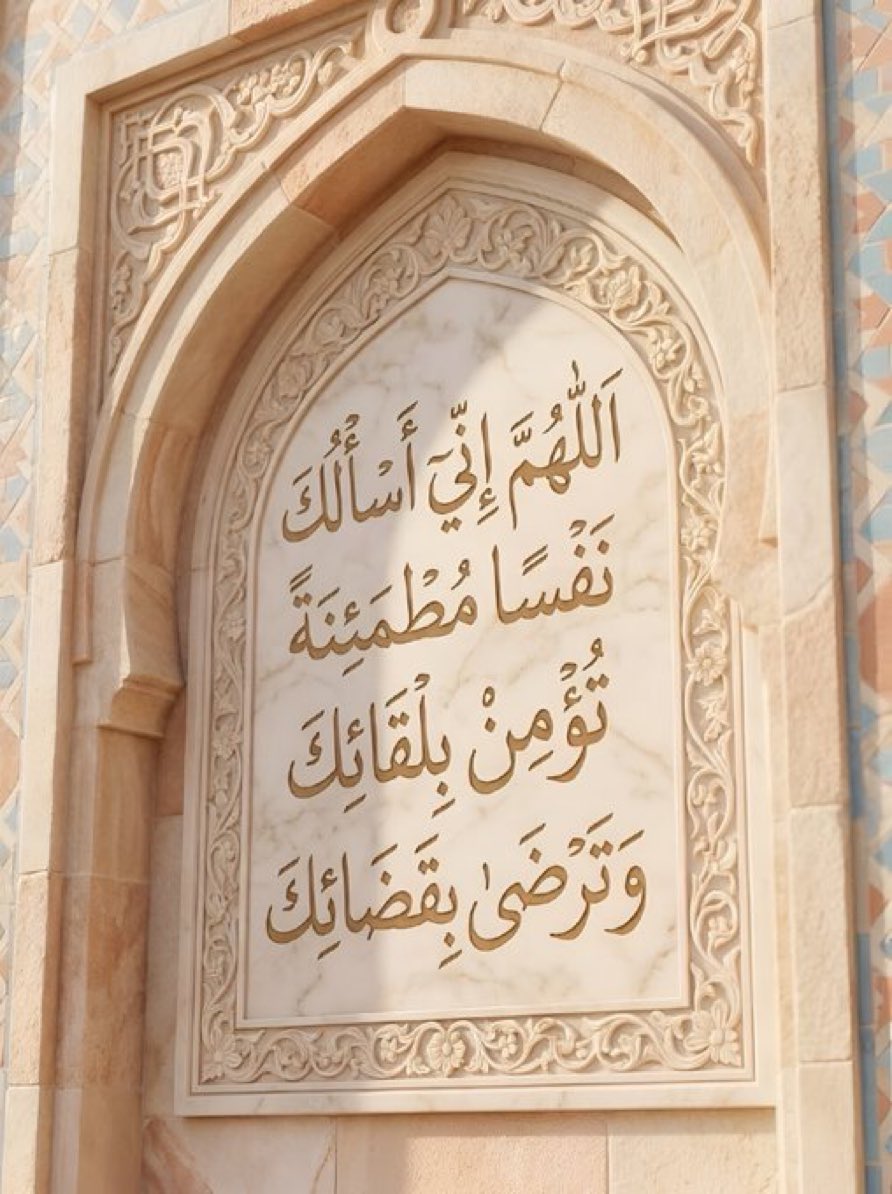 اَللّٰهُمَّ إِنِّيٓ أَسْأَلُكَ
نَفْسًا مُطْمَئِنَةً
تُؤْمِنْ بِلْقَائِكَ
وَتَرْضَىٰ بِقَضَائِكَ